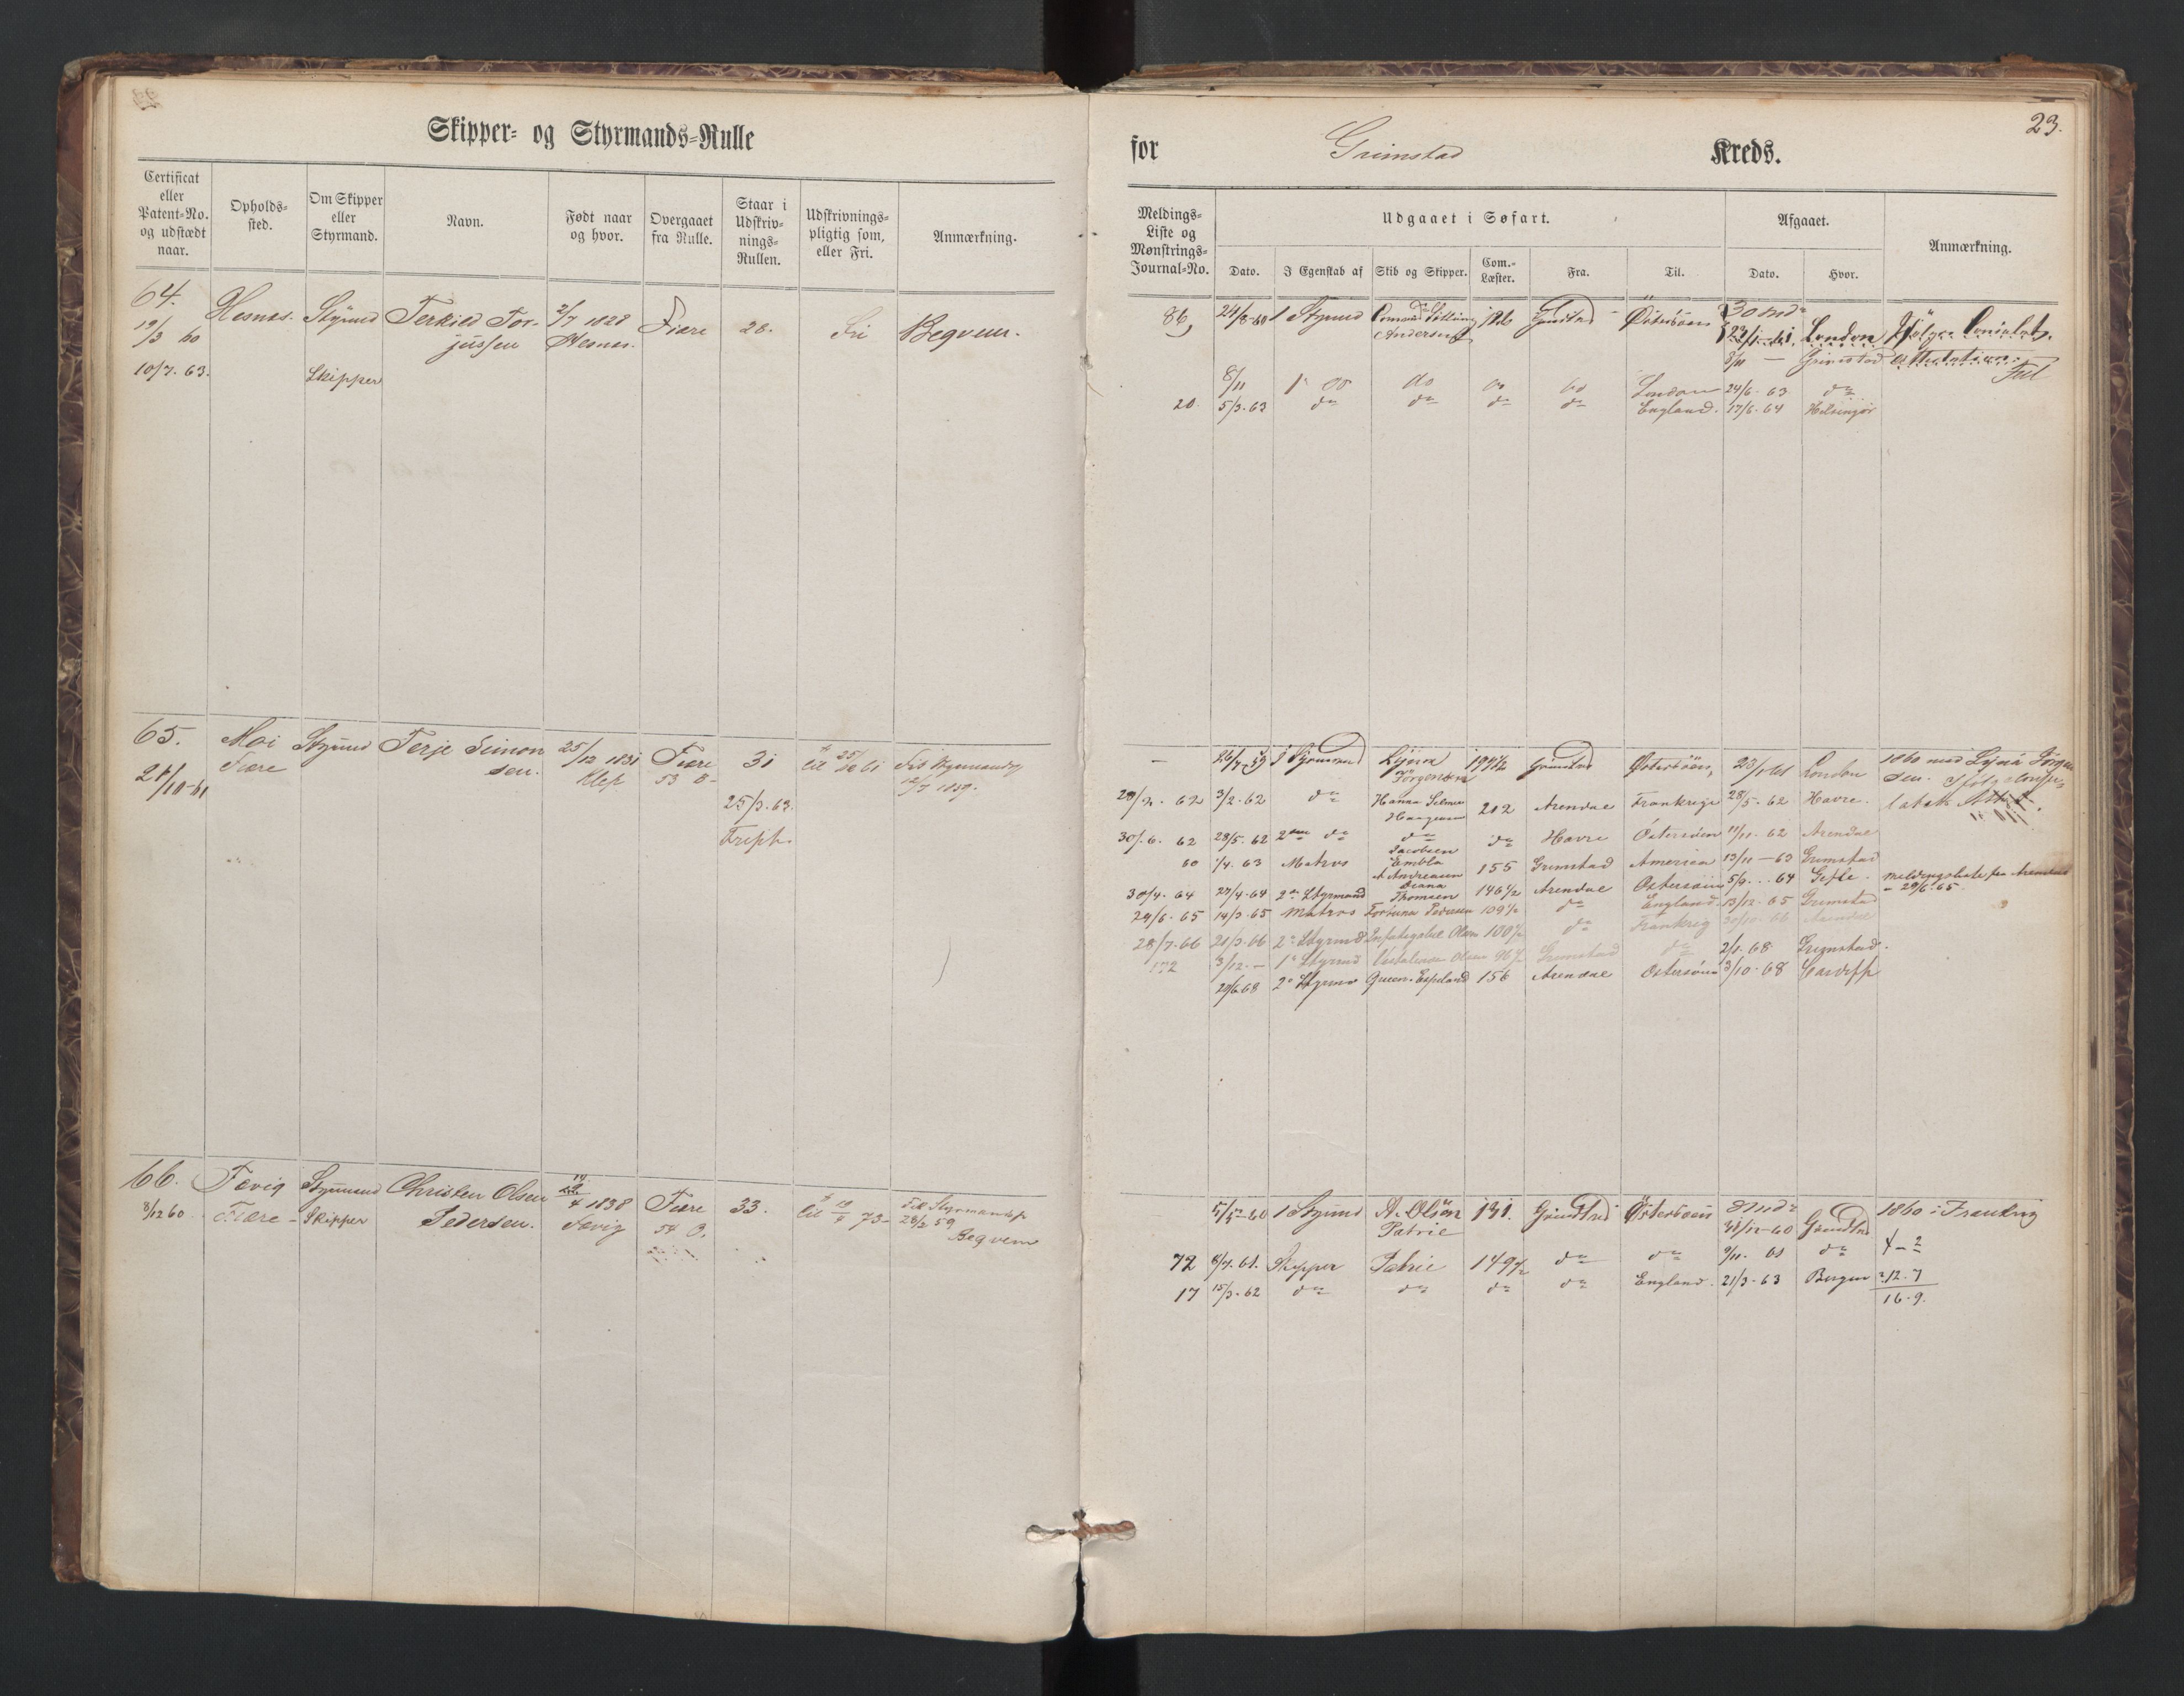 Skipper- og Styrmands-Rulle
Certificat eller Patent-No. og udstædt naar.
Opholds-sted.
Om Skipper eller Styrmand.
Navn.
Født naar og hvor.
Overgaaet fra Rulle.
Staar i Udskriv-nings-Rullen.
Udskrivnings-pligtig som, eller Fri.
Anmærkning.
64. Hesnes. Styrmd Terkild Tor- 2/7 1828 Fiære 28. Fri Begvem.
19/3 60 jussen Hesnes.
10/7. 63. Skipper
65. Moi Styrmd Terje Simon 25/12 1831 Fiære 31 til 25/12 61
21/10-61 Fiære sen. Klep 53 B 12/7 1859.
25/3. 63.
Fript.
66. Fevig Styrmand Christen Olsen 4 1838 Fiære 33. til 73 Til Styrmandsp
8/12 60 Fiære - Skipper Pedersen. Fevig 54 B. 28/2 59
Begvem
for Grimstad Kreds.
23.
Meldings-Liste og Mønstrings-Journal-No.
Udgaaet i Søfart.
Dato.
I Egenskab af
Skib og Skipper.
Com.-Læster.
Fra.
Til.
Afgaaet.
Dato.
Hvor.
Anmærkning.
86, 24/8-60 1 Styrmd Andersen Grimstad Østersøen 30
23/1-61, London
8/11 — Grimstad Attestation.
8/11 1e do do do do London 24/6. 63 do
20. 5/3. 63 do do do do England. 17/6. 64 Helsingør
— 26/7-59 1 Styrmand Jørgensen 197 1/2 Grimstad Østersøen, 23/1 61 London
28/2. 62 3/2-62 do Hanna 212 Arendal Frankrige 28/5. 62 Havre.
30/6. 62 28/5. 62 2den do do do Havre Østersøen 11/11. 62 Arendal
Jacobsen
60 /4. 63 Matros Embla 155 Grimstad America 13/11 — 63 Grimstad
A Andreasen
30/4. 64 27/4-64 2en Styrmand Diana Thomsen 146 1/2 Arendal Østersøen 5/9 . . 64 Gefle. Meldingsliste fra Arendal
- 29/6. 65.
29/6. 65 14/3. 65 Matros Fortuna Pedersen 109 1/2 do England 13/12. 65 Grimstad
28/7. 66 21/3. 66 2e Styrmd Olsen 100 1/2 do Frankrig 30/10. 66 Arendal
172 3/12. — 1e Styrmd Olsen Grimstad do 2/1. 68 Grimstad.
29/6 68 2e Styrmd Queen. Espeland 156 Arendal Østersøen 3/10. 68 Cardiff
60 1 Styrmd A. Olsen 131. Grimstad Østersøen
Patrie 31/12-60 Grimstad 1860 i Frankrig
72 8/7. 61. Skipper Patrie 149 1/2 do do 9/11. 61 do 4 - 2
17 15/3. 62 do do do do England. 21/3. 63 Bergen 12. 7
16. 9.